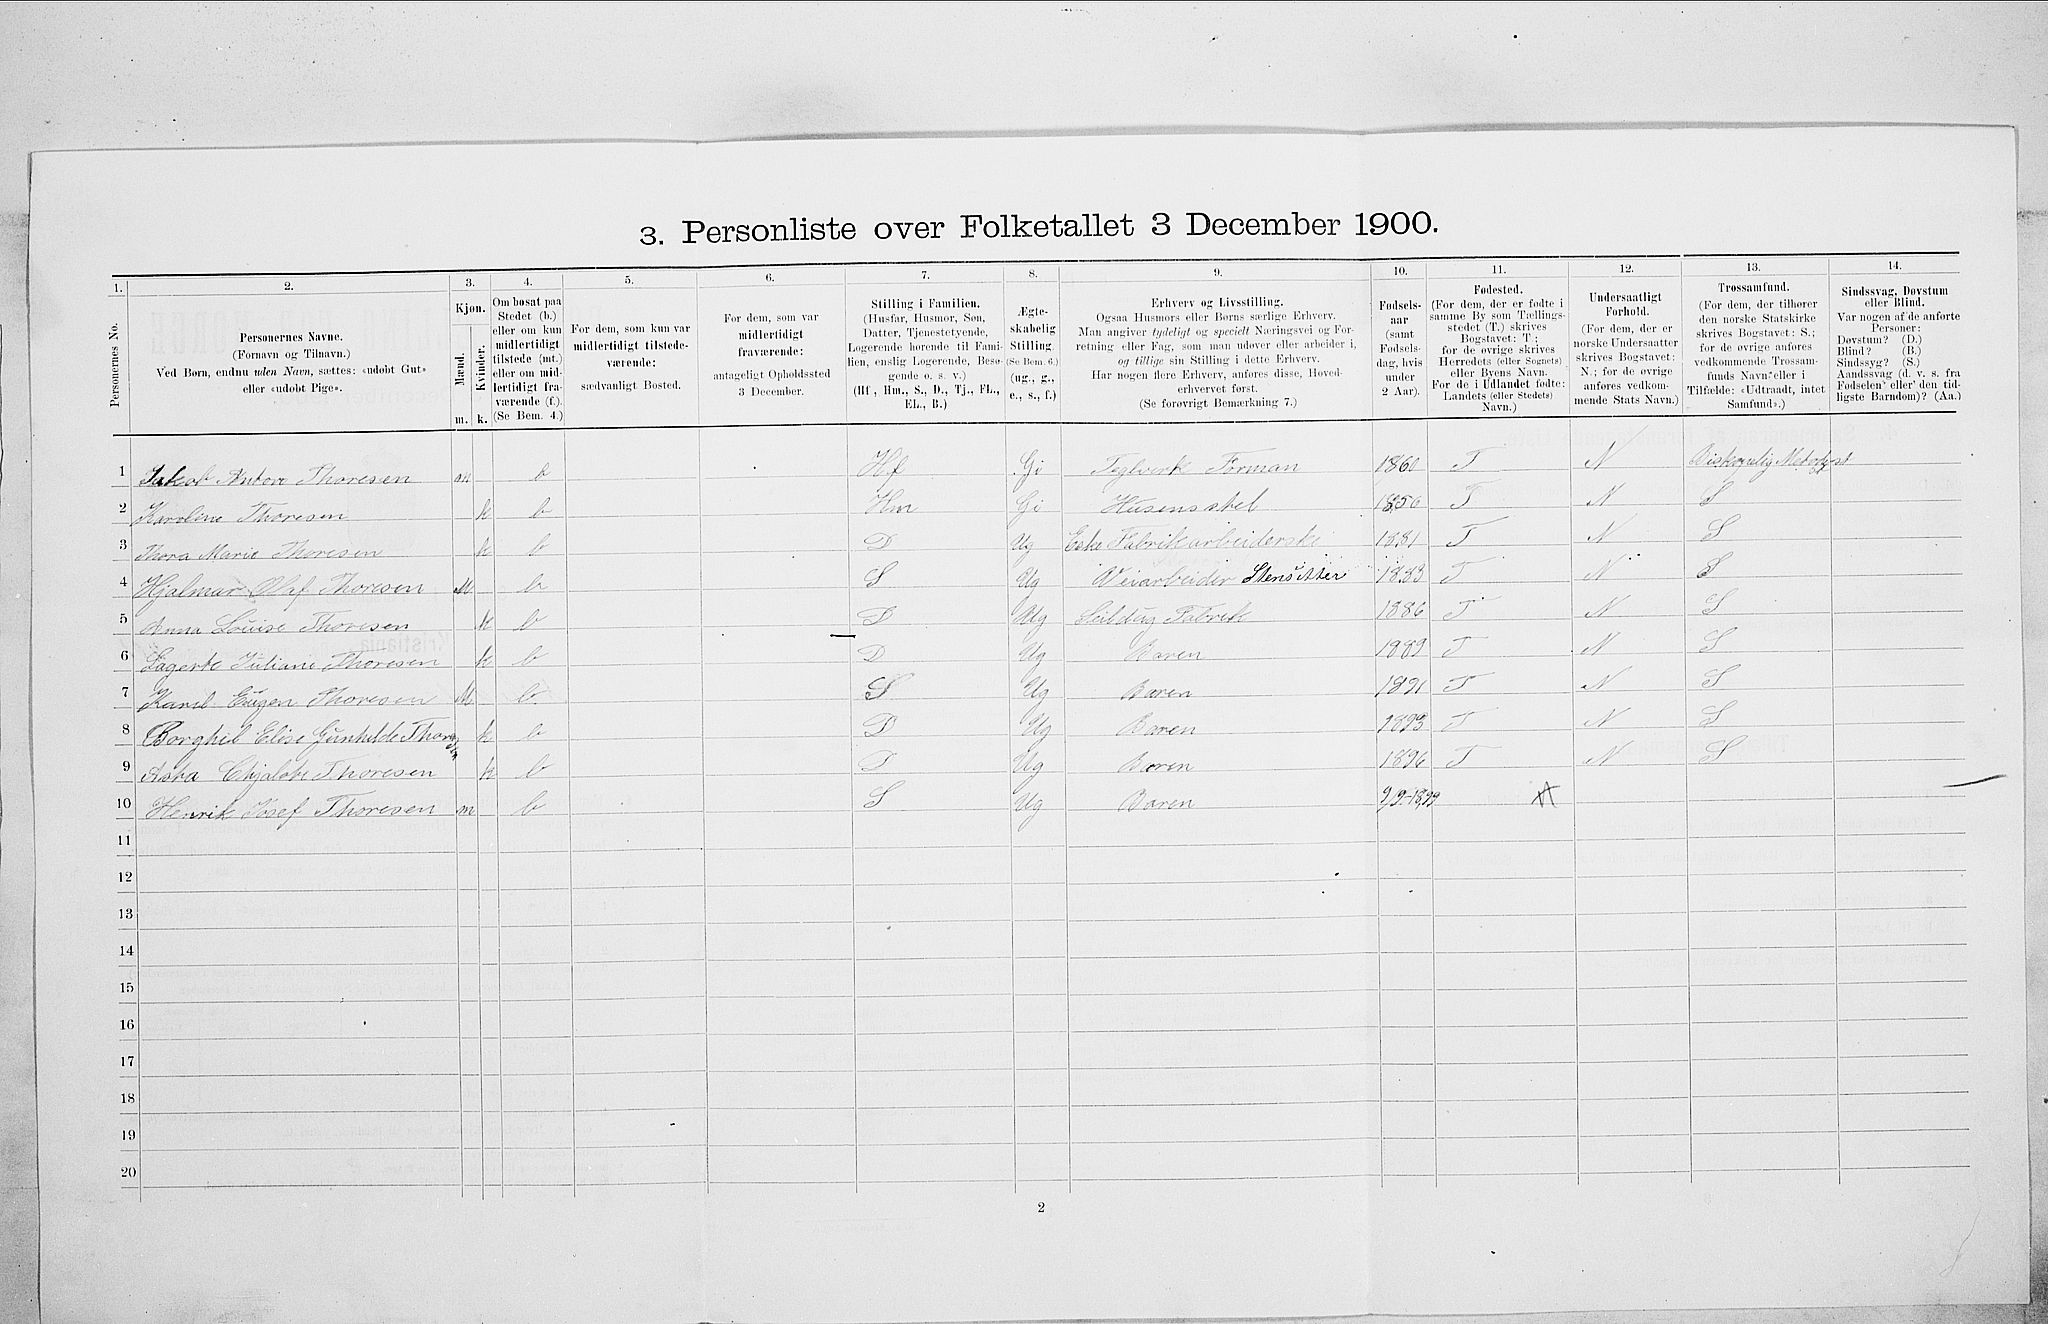 3. Personliste over Folketallet 3 December 1900.
1. 2. 3. 4. 5. 6. 7. 8. 9. 10. 11. 12. 13. 14.
Personernes No.
Personernes Navne.
(Fornavn og Tilnavn.)
Ved Børn, endnu uden Navn, sættes: «udøbt Gut»
eller «udøbt Pige».
Kjøn.
Mænd.
Kvinder.
m. k.
Om bosat paa
Stedet (b.)
eller om kun
midlertidigt
tilstede (mt.)
eller om mid-
lertidigt fra-
værende (f.)
(Se Bem. 4.)
For dem, som kun var
midlertidigt tilstede-
værende:
sædvanligt Bosted.
For dem, som var
midlertidigt
fraværende:
antageligt Opholdssted
3 December.
Stilling i Familien.
(Husfar, Husmor, Søn,
Datter, Tjenestetyende,
Logerende hørende til Fami-
lien, enslig Logerende, Besø-
gende o. s. v.)
(Hf., Hm., S., D., Tj., FL.,
EL., B.)
Ægte-
skabelig
Stilling.
(Se Bem. 6.)
(ug., g.,
e., s., f.)
Erhverv og Livsstilling.
Ogsaa Husmors eller Børns særlige Erhverv.
Man angiver tydeligt og specielt Næringsvei og For-
retning eller Fag, som man udøver eller arbeider i,
og tillige sin Stilling i dette Erhverv.
Har nogen flere Erhverv, anføres disse, Hoved-
erhvervet først.
(Se forøvrigt Bemærkning 7.)
Fødsels-
aar
(samt
Fødsels-
dag, hvis
under
2 Aar).
Fødested.
(For dem, der er fødte i
samme By som Tællings-
stedet (T.) skrives
Bogstavet: T ;
for de øvrige skrives
Herredets (eller Sognets)
eller Byens Navn.
For de i Udlandet fødte:
Landets (eller Stedets)
Navn.)
Undersaatligt
Forhold.
(For dem, der er
norske Undersaatter
skrives Bogstavet:
N.; for de øvrige
anføres vedkom-
mende Stats Navn.)
Trossamfund.
(For dem, der tilhører
den norske Statskirke
skrives Bogstavet: S.;
for de øvrige anføres
vedkommende Trossam-
funds Navn eller i
Tilfælde: «Udtraadt, intet
Samfund».)
Sindssvag, Døvstum
eller Blind.
Var nogen af de anførte
Personer:
Døvstum? (D.)
Blind? (B.)
Sindssyg? (S.)
Aandssvag (d. v. s. fra
Fødselen eller den tid-
ligste Barndom)? (Aa.)
1 Jakob Anton Thoresen m b Hf Gi Teglverk Forman 1860 T N Metodyst
2 Karoline Thoresen k b Hm Gi Husensstel 1850 T N S
3 Thora Marie Thoresen k b D Ug Fabrikarbeiderske 1881 T N S
4 Hjalmar Olaf Thoresen M b S Ug Veiarbeider Stensitter 1883 T N S
5 Anna Louise Thoresen k b D Ug Seildug Fabrik 1886 T N S
6 Lagerte Juliane Thoresen k b D Ug Baren 1889 T N S
7 Karel Eugen Thoresen M b S Ug Baren 1891 T N S
8 Borghil Elise Gunhilde Thoresen k b D Ug Baren 1893 T N S
9 Asta Thoresen k b D Ug Baren 1896 T N S
10 Henrik Josef Thoresen m b S Ug Baren 9/9-1899
11
12
13
14
15
16
17
18
19
20
2